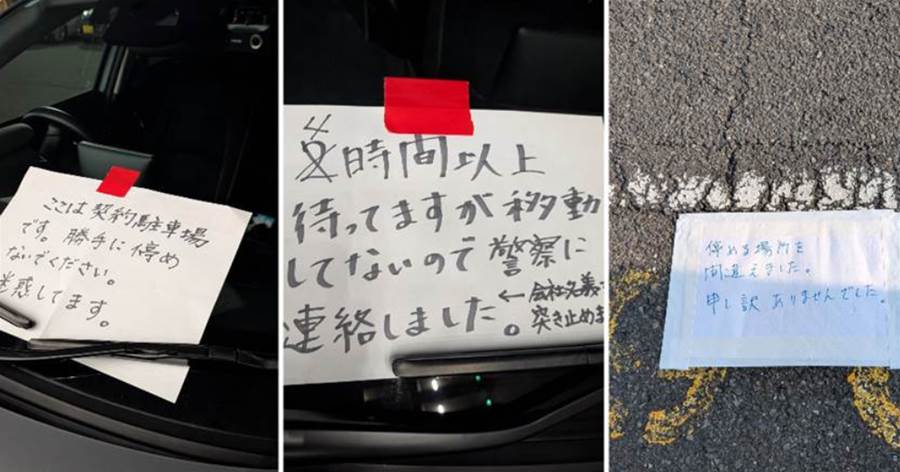 ここは契約駐車場
です。勝手に停め
ないでください。
迷惑してます。
4時間以上
待ってますが移動
してないので警察に
連絡しました。
←会社名義
突き止めま
停める場所を
間違えました。
申し訳ありませんでした。